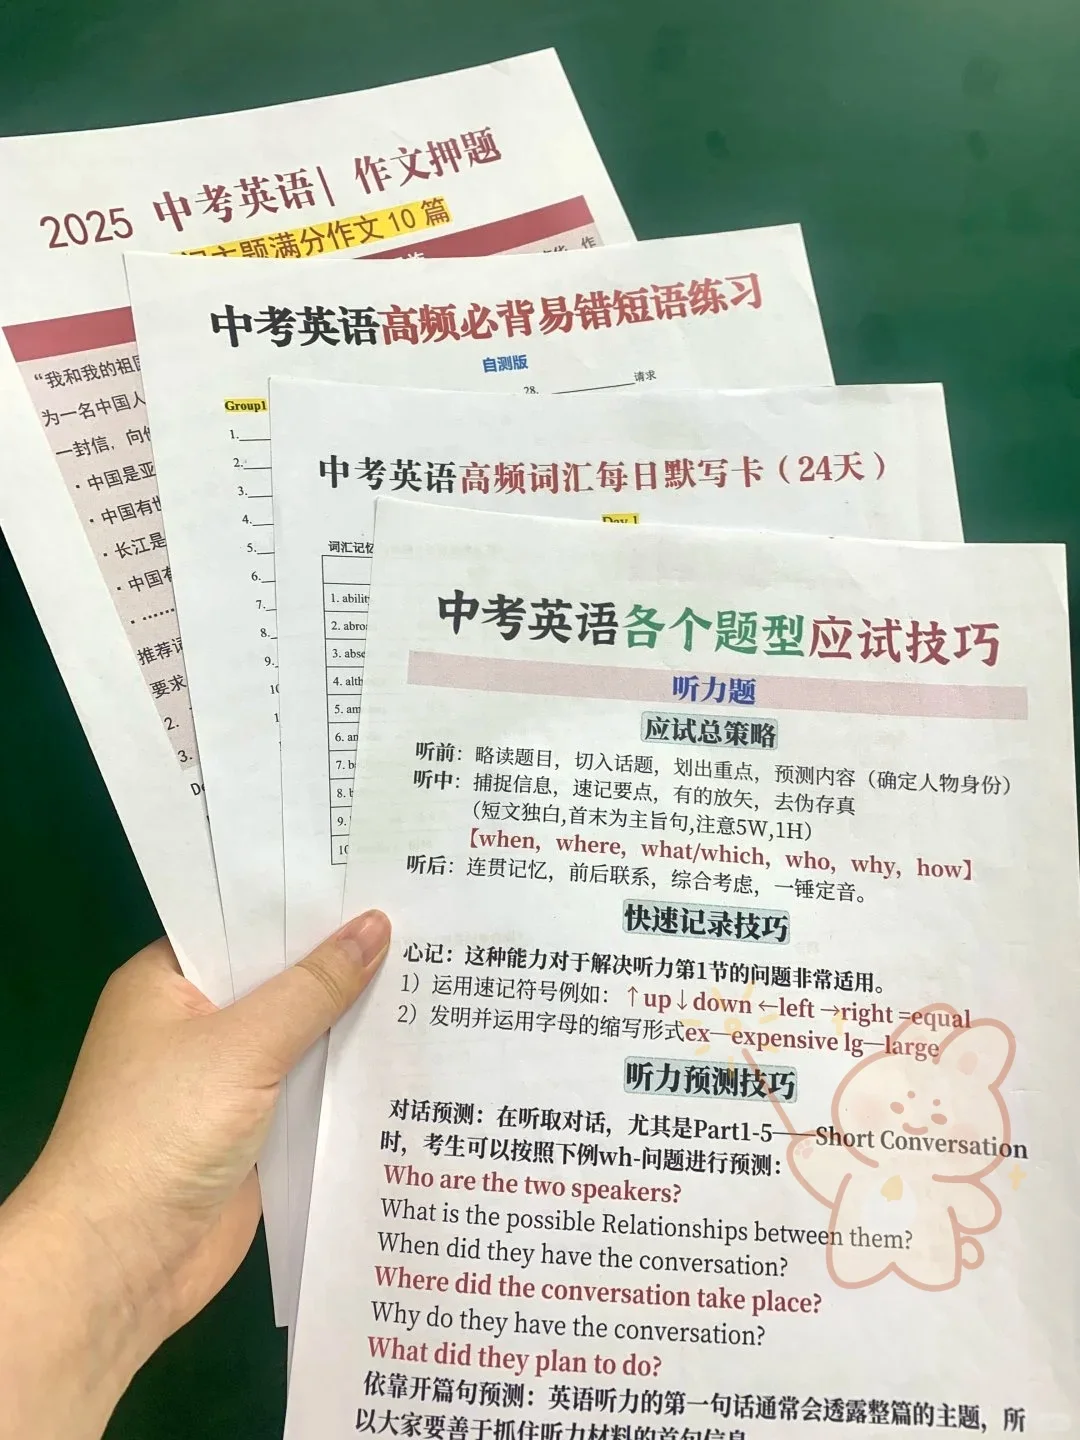 2025 中考英语| 作文押题
主题满分作文10篇
“我和我的祖国
为一名中国人
一封信，向
· 中国是亚
· 中国有世
· 长江是
· 中国有
· ……
推荐
要求
2.
3.
De
中考英语高频必背易错短语练习
自测版
28.__________请求
Group1
1.
2.
3.
4.
5.
6.
7.
8.
9.
中考英语高频词汇每日默写卡（24天）
Day 1
词汇记忆
1. ability
2. abro
3. abse
4. alth
5. am
6. an
7. b
8. b
9.
10
中考英语各个题型应试技巧
听力题
应试总策略
听前：略读题目，切入话题，划出重点，预测内容（确定人物身份）
听中：捕捉信息，速记要点，有的放矢，去伪存真
（短文独白,首末为主旨句,注意5W,1H）
【when，where，what/which，who，why，how】
听后：连贯记忆，前后联系，综合考虑，一锤定音。
快速记录技巧
心记：这种能力对于解决听力第1节的问题非常适用。
1）运用速记符号例如：↑up↓down ←left →right =equal
2）发明并运用字母的缩写形式ex—expensive lg—large
听力预测技巧
对话预测：在听取对话，尤其是Part1-5——Short Conversation
时，考生可以按照下例wh-问题进行预测：
Who are the two speakers?
What is the possible Relationships between them?
When did they have the conversation?
Where did the conversation take place?
Why do they have the conversation?
What did they plan to do?
依靠开篇句预测：英语听力的第一句话通常会透露整篇的主题，所
以大家要善于抓住听力材料的首句信息